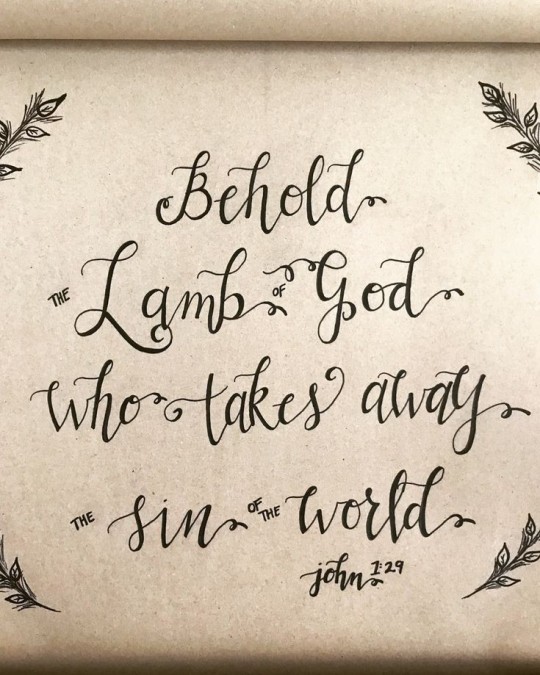 Behold
THE Lamb OF God
who takes away
THE sin OF THE world
john 1:29